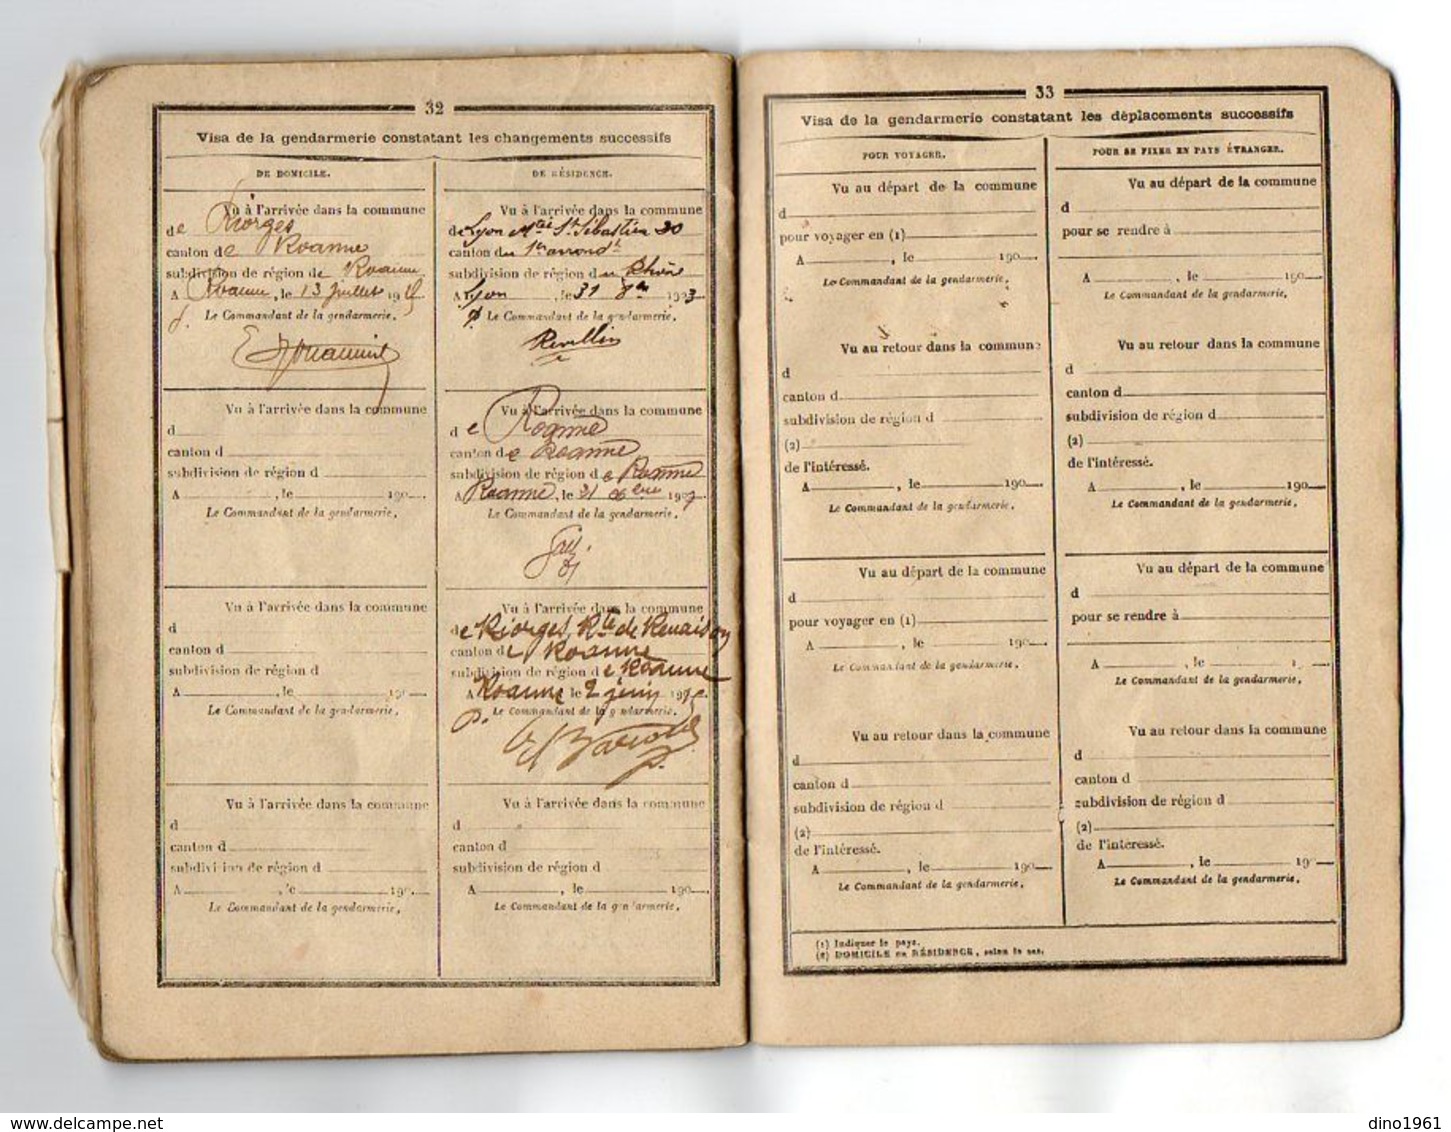 32
Visa de la gendarmerie constatant les changements successifs
DE DOMICILE.
Vu à l'arrivée dans la commune
de Riorges
canton de Roanne
subdivision de région de Roanne
A Roanne, le 13 juillet 19
Le Commandant de la gendarmerie,
Vu à l'arrivée dans la commune
d
canton d
subdivision de région d
A , le 190 .
Le Commandant de la gendarmerie,
Vu à l'arrivée dans la commune
d
canton d
subdivision de région d
A , le 190 .
Le Commandant de la gendarmerie,
Vu à l'arrivée dans la commune
d
canton d
subdivision de région d
A , le 190 .
Le Commandant de la gendarmerie,
DE RÉSIDENCE.
Vu à l'arrivée dans la commune
de Lyon Mtée St Sébastien 20
canton du 1er arrondt
subdivision de région du Rhône
A Lyon, le 31 1903
Le Commandant de la gendarmerie,
Revillin
Vu à l'arrivée dans la commune
de Roanne
canton de Roanne
subdivision de région de Roanne
A Roanne, le 21 8bre 1907
Le Commandant de la gendarmerie,
Vu à l'arrivée dans la commune
de Riorges, Rte de Renaison
canton de Roanne
subdivision de région de Roanne
A Roanne le 2 juin 19
P. Le Commandant de la gendarmerie,
Vu à l'arrivée dans la commune
d
canton d
subdivision de région d
A , le 190 .
Le Commandant de la gendarmerie,
33
Visa de la gendarmerie constatant les déplacements successifs
POUR VOYAGER.
Vu au départ de la commune
d
pour voyager en (1)
A , le 190 .
Le Commandant de la gendarmerie,
Vu au retour dans la commune
d
canton d
subdivision de région d
(2)
de l'intéressé.
A , le 190 .
Le Commandant de la gendarmerie,
Vu au départ de la commune
d
pour voyager en (1)
A , le 190 .
Le Commandant de la gendarmerie,
Vu au retour dans la commune
d
canton d
subdivision de région d
(2)
de l'intéressé.
A , le 190 .
Le Commandant de la gendarmerie,
POUR SE FIXER EN PAYS ÉTRANGER.
Vu au départ de la commune
d
pour se rendre à
A , le 190 .
Le Commandant de la gendarmerie,
Vu au retour dans la commune
d
canton d
subdivision de région d
(2)
de l'intéressé.
A , le 190 .
Le Commandant de la gendarmerie,
Vu au départ de la commune
d
pour se rendre à
A , le 1 .
Le Commandant de la gendarmerie,
Vu au retour dans la commune
d
canton d
subdivision de région d
(2)
de l'intéressé.
A , le 19
Le Commandant de la gendarmerie,
(1) Indiquer le pays.
(2) DOMICILE ou RÉSIDENCE, selon le cas.
dino1961